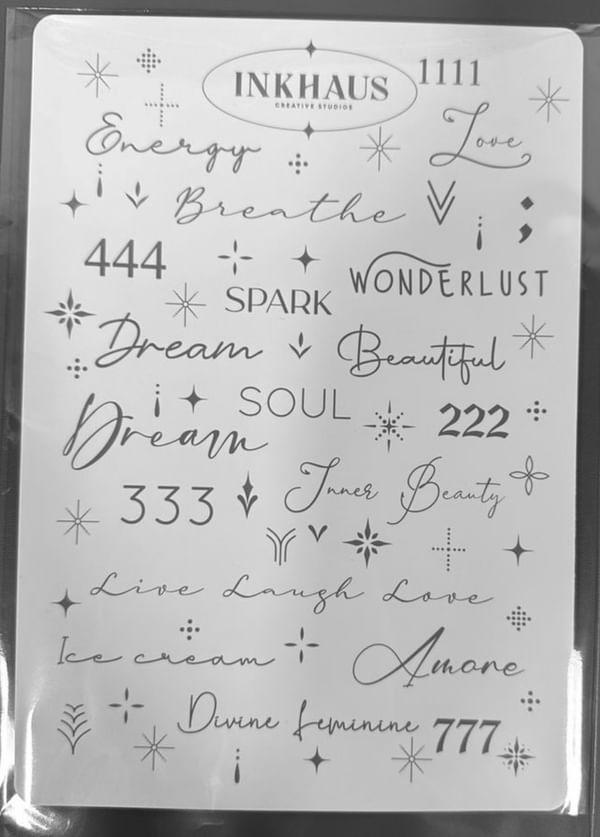 INKHAUS
CREATIVE STUDIOS
1111
Energy
Love
Breathe
;
444
WONDERLUST
SPARK
Dream
Beautiful
SOUL
Dream
222
333
Inner Beauty
Live Laugh Love
Ice cream
Amore
Divine feminine
777